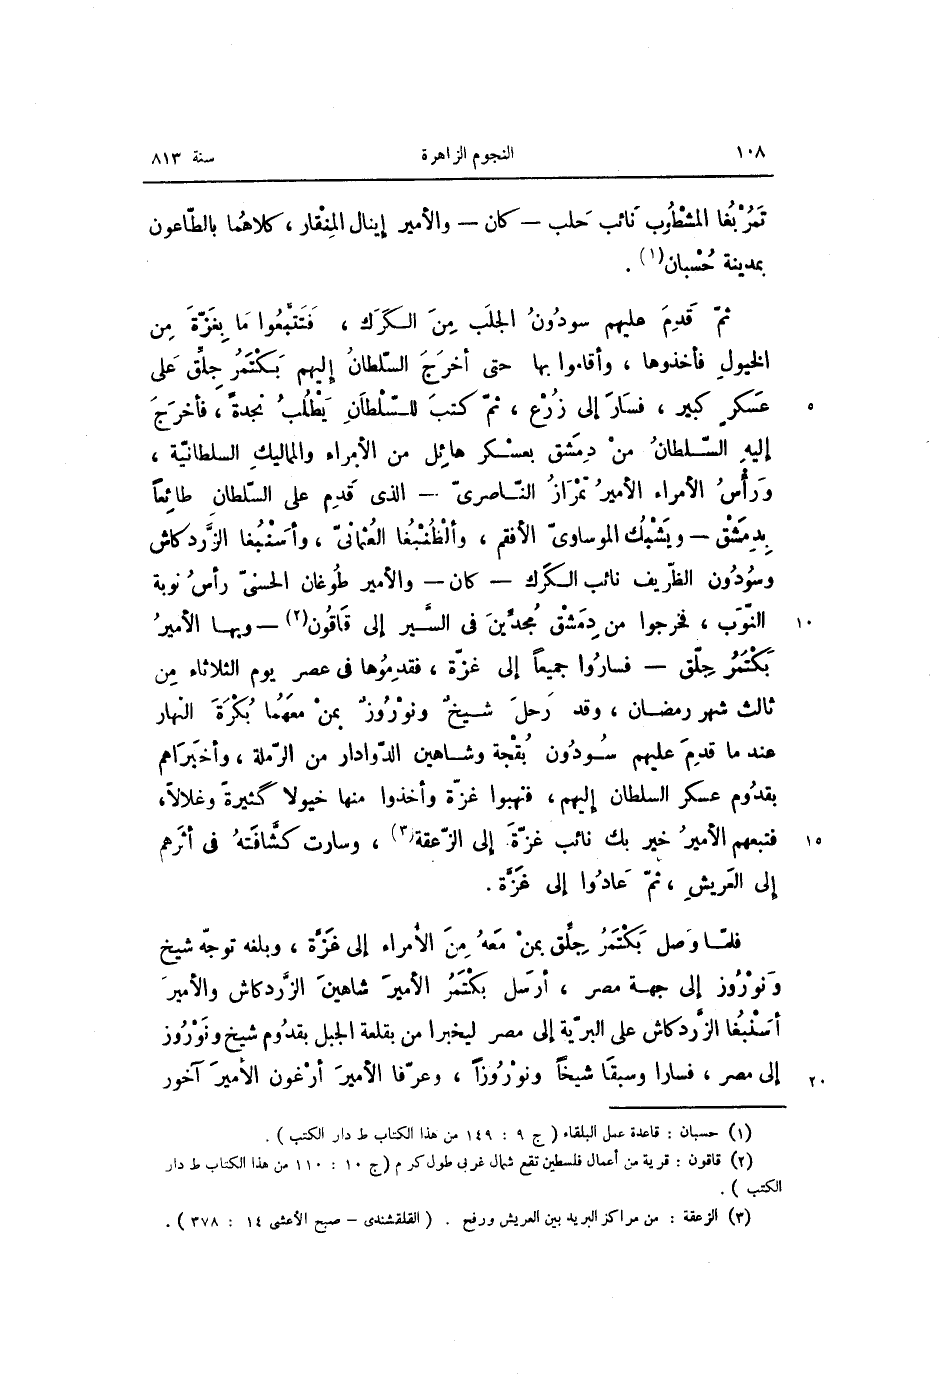 ١٠٨ النجوم الزاهرة سنة ٨١٣
تَمُرْبُغا المشْطُوب نَائب حَلب — كان — والأمير إينال المِنْقار ، كلاهُما بالطّاعون
بمدينة حُسْبان(١) .
ثمّ قَدِمَ عليهم سودُونُ الجلَب مِنَ الكَرَك ، فَتَتَبَّعُوا مَا بِغَزّةَ مِن
الخيولِ فأخذوها ، وأقاموا بها حتى أخرَجَ السّلطانُ إليهم بَكْتَمُر جِلِّق عَلَى
عَسكرٍ كبير ، فسَارَ إلى زُرْع ، ثمّ كتبَ للسّلْطاَنِ يَطْلُبُ نجدةً ، فأخرَجَ ٥
إليهِ السّلطانُ منْ دِمَشق بعسْكر هائِل من الأمراء والمماليكِ السلطانيّة ،
وَرَأْسُ الأمراء الأميرُ تمْرَازُ النّاصرىّ — الذى قَدِم على السّلطان طائِعاً
بِدِمَشْق — ويَشْبُك الموساوىّ الأفقم ، وألْطُنْبُغا العُثمَانىّ ، وأسَنْبُغا الزَّردكاش
وسُودُون الظّريف نائب الكَرَك — كان — والأمير طُوغان الحسنىّ رأسُ نوبة
النّوَب ، فخرجوا من دِمَشْق مُجدِّينَ فى السَّير إلى قَاقُون(٢) — وبها الأميرُ ١٠
بَكْتَمُرُ جِلّق — فسارُوا جميعاً إلى غزّة ، فقدمُوها فى عصر يوم الثلاثاء مِن
ثالث شهر رمضان ، وقد رَحلَ شيخٌ ونوْرُوزٌ بمنْ معَهُما بُكْرَةَ النهار
عند ما قدمَ عليهم سُودُون بُقْجة وشاهين الدّوادار من الرّملة ، وأخبَرَاهم
بقدُوم عسكر السلطان إليهم ، فنهبوا غزّة وأخذوا منها خيولا كَثيرةً وغلالاً،
فتبعهم الأميرُ خير بك نائب غزّةَ إلى الزّعقة(٣) ، وسارت كشَّافَتهُ فى أثَرهم ١٥
إلى العَريشِ ، ثمّ عَادُوا إلى غَزَّة .
فلمّا وَصل بَكْتَمُرُ جِلَّق بمنْ مَعهُ مِنَ الأُمراء إلى غَزَّة ، وبلغه توجّه شيخ
وَنوْرُوز إلى جهة مصر ، أرسَل بَكْتَمُرُ الأميرَ شاهينَ الزَّردكاش والأميرَ
أسَنْبُغا الزَّردكاش على البرّية إلى مصر ليخبرا من بقلعة الجبل بقدُوم شيخ ونَوْرُوز
إلى مصر ، فسارا وسبقَا شيخاً ونوْرُوزاً ، وعرّفا الأميرَ أرْغون الأميرَ آخور ٢٠
(١) حسبان : قاعدة عمل البلقاء ( ج ٩ : ١٤٩ من هذا الكتاب ط دار الكتب ) .
(٢) قاقون : قرية من أعمال فلسطين تقع شمال غربى طول كرم (ج ١٠ : ١١٠ من هذا الكتاب ط دار
الكتب ) .
(٣) الزعقة : من مراكز البريد بين العريش ورفح . ( القلقشندى – صبح الأعشى ١٤ : ٣٧٨ ) .